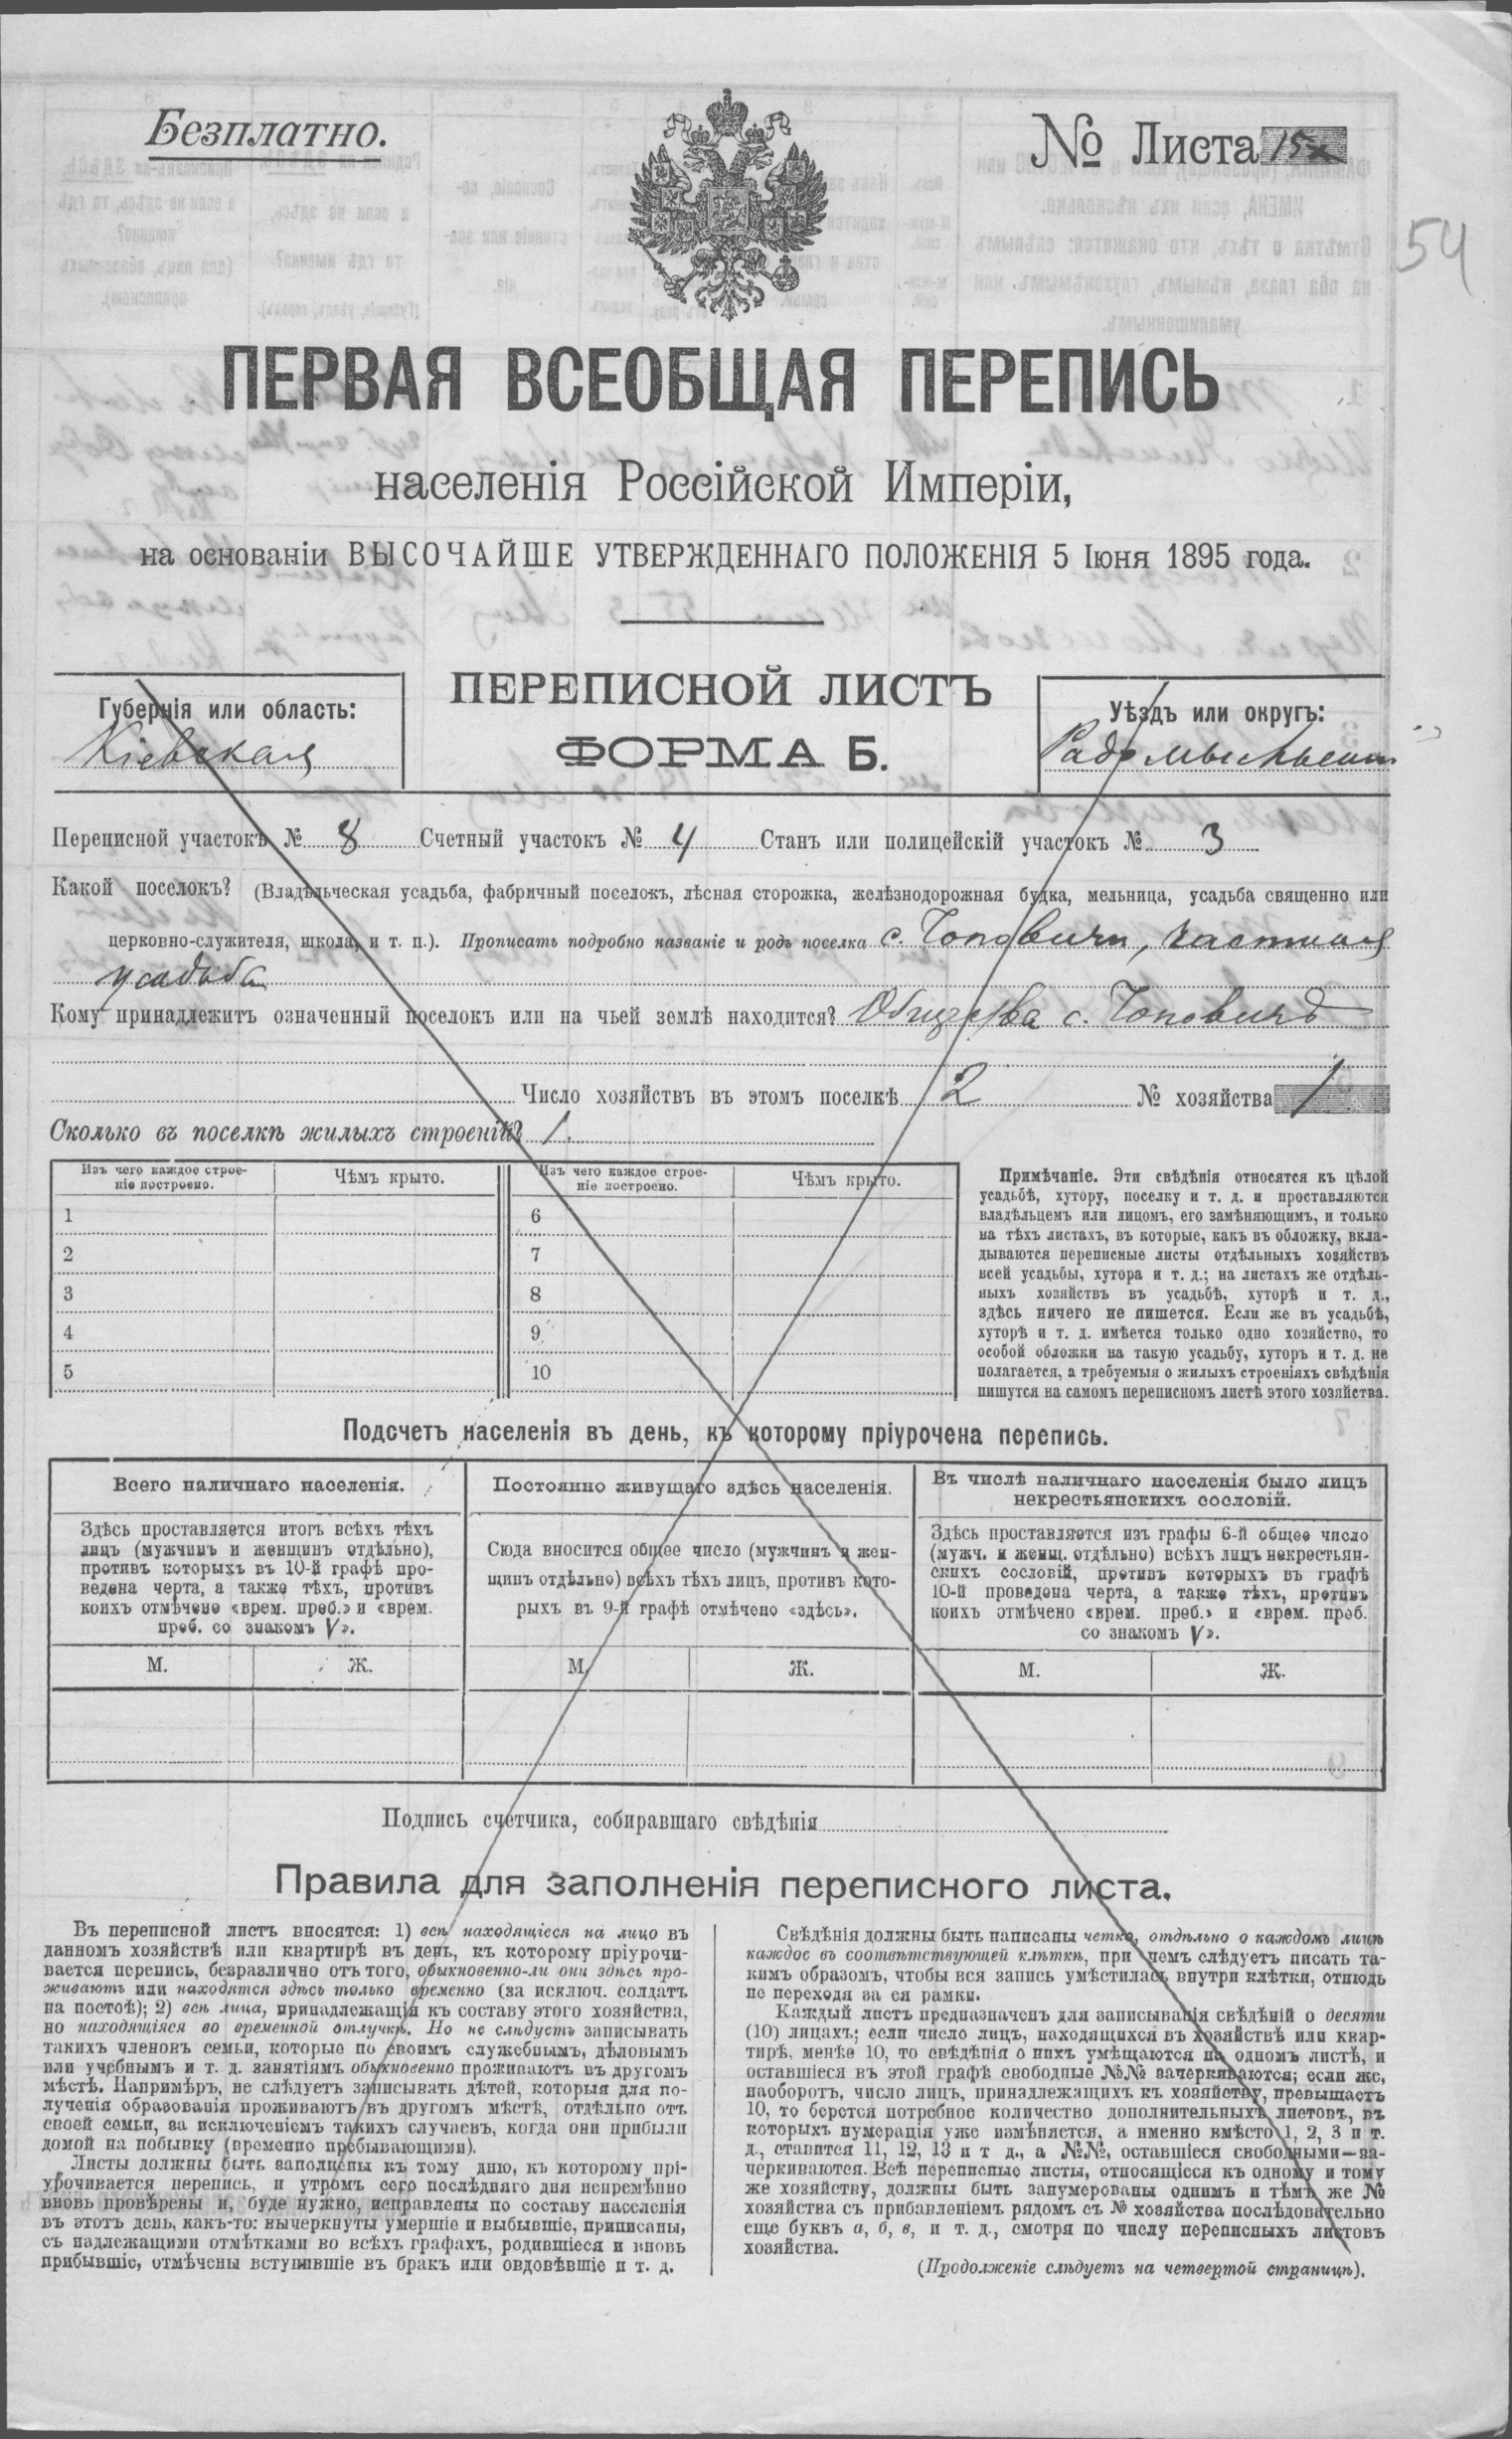 Безплатно.
№ Листа 15
54
ПЕРВАЯ ВСЕОБЩАЯ ПЕРЕПИСЬ
населенія Россійской Имперіи,
на основаніи ВЫСОЧАЙШЕ УТВЕРЖДЕННАГО ПОЛОЖЕНІЯ 5 Іюня 1895 года.
ПЕРЕПИСНОЙ ЛИСТЪ
ФОРМА Б.
Губернія или область:
Кіевская
Уѣздъ или округъ:
Радомысльскій
Переписной участокъ № 8 Счетный участокъ № 4 Станъ или полицейскій участокъ № 3
Какой поселокъ? (Владѣльческая усадьба, фабричный поселокъ, лѣсная сторожка, желѣзнодорожная будка, мельница, усадьба священно или
церковно-служителя, школа, и т. п.). Прописать подробно названіе и родъ поселка с. Чоповичи, частная
усадьба
Кому принадлежитъ означенный поселокъ или на чьей землѣ находится? Общества с. Чоповичъ
Число хозяйствъ въ этомъ поселкѣ 2 № хозяйства 1
Сколько въ поселкѣ жилыхъ строеній? 1.
Изъ чего каждое строе-
ніе построено.
Чѣмъ крыто.
Изъ чего каждое строе-
ніе построено.
Чѣмъ крыто.
1 6
2 7
3 8
4 9
5 10
Примѣчаніе. Эти свѣдѣнія относятся къ цѣлой
усадьбѣ, хутору, поселку и т. д. и проставляются
владѣльцемъ или лицомъ, его замѣняющимъ, и только
на тѣхъ листахъ, въ которые, какъ въ обложку, вкла-
дываются переписные листы отдѣльныхъ хозяйствъ
всей усадьбы, хутора и т. д.; на листахъ же отдѣль-
ныхъ хозяйствъ въ усадьбѣ, хуторѣ и т. д.,
здѣсь ничего не пишется. Если же въ усадьбѣ,
хуторѣ и т. д. имѣется только одно хозяйство, то
особой обложки на такую усадьбу, хуторъ и т. д. не
полагается, а требуемыя о жилыхъ строеніяхъ свѣдѣнія
пишутся на самомъ переписномъ листѣ этого хозяйства.
Подсчетъ населенія въ день, къ которому пріурочена перепись.
Всего наличнаго населенія.
Здѣсь проставляется итогъ всѣхъ тѣхъ
лицъ (мужчинъ и женщинъ отдѣльно),
противъ которыхъ въ 10-й графѣ про-
ведена черта, а также тѣхъ, противъ
коихъ отмѣчено «врем. преб.» и «врем.
преб. со знакомъ V».
М. Ж.
Постоянно живущаго здѣсь населенія.
Сюда вносится общее число (мужчинъ и жен-
щинъ отдѣльно) всѣхъ тѣхъ лицъ, противъ кото-
рыхъ въ 9-й графѣ отмѣчено «здѣсь».
М. Ж.
Въ числѣ наличнаго населенія было лицъ
некрестьянскихъ сословій.
Здѣсь проставляется изъ графы 6-й общее число
(мужч. и женщ. отдѣльно) всѣхъ лицъ некрестьян-
скихъ сословій, противъ которыхъ въ графѣ
10-й проведена черта, а также тѣхъ, противъ
коихъ отмѣчено «врем. преб.» и «врем. преб.
со знакомъ V».
М. Ж.
Подпись счетчика, собиравшаго свѣдѣнія
Правила для заполненія переписного листа.
Въ переписной листъ вносятся: 1) всѣ находящіеся на лицо въ
данномъ хозяйствѣ или квартирѣ въ день, къ которому пріурочи-
вается перепись, безразлично отъ того, обыкновенно-ли они здѣсь про-
живаютъ или находятся здѣсь только временно (за исключ. солдатъ
на постоѣ); 2) всѣ лица, принадлежащія къ составу этого хозяйства,
но находящіяся во временной отлучкѣ. Но не слѣдуетъ записывать
такихъ членовъ семьи, которые по своимъ служебнымъ, дѣловымъ
или учебнымъ и т. д. занятіямъ обыкновенно проживаютъ въ другомъ
мѣстѣ. Напримѣръ, не слѣдуетъ записывать дѣтей, которыя для по-
лученія образованія проживаютъ въ другомъ мѣстѣ, отдѣльно отъ
своей семьи, за исключеніемъ такихъ случаевъ, когда они прибыли
домой на побывку (временно пребывающими).
Листы должны быть заполнены къ тому дню, къ которому прі-
урочивается перепись, и утромъ сего послѣдняго дня непремѣнно
вновь провѣрены и, буде нужно, исправлены по составу населенія
въ этотъ день, какъ-то: вычеркнуты умершіе и выбывшіе, приписаны,
съ надлежащими отмѣтками во всѣхъ графахъ, родившіеся и вновь
прибывшіе, отмѣчены вступившіе въ бракъ или овдовѣвшіе и т. д.
Свѣдѣнія должны быть написаны четко, отдѣльно о каждомъ лицѣ
каждое въ соотвѣтствующей клѣткѣ, при чемъ слѣдуетъ писать та-
кимъ образомъ, чтобы вся запись умѣстилась внутри клѣтки, отнюдь
не переходя за ея рамки.
Каждый листъ предназначенъ для записыванія свѣдѣній о десяти
(10) лицахъ; если число лицъ, находящихся въ хозяйствѣ или квар-
тирѣ, менѣе 10, то свѣдѣнія о нихъ умѣщаются на одномъ листѣ, и
оставшіеся въ этой графѣ свободные №№ зачеркиваются; если же,
наоборотъ, число лицъ, принадлежащихъ къ хозяйству, превышаетъ
10, то берется потребное количество дополнительныхъ листовъ, въ
которыхъ нумерація уже измѣняется, а именно вмѣсто 1, 2, 3 и т.
д., ставится 11, 12, 13 и т д., а №№, оставшіеся свободными—за-
черкиваются. Всѣ переписные листы, относящіеся къ одному и тому
же хозяйству, должны быть занумерованы однимъ и тѣмъ же №
хозяйства съ прибавленіемъ рядомъ съ № хозяйства послѣдовательно
еще буквъ а, б, в, и т. д., смотря по числу переписныхъ листовъ
хозяйства.
(Продолженіе слѣдуетъ на четвертой страницѣ).